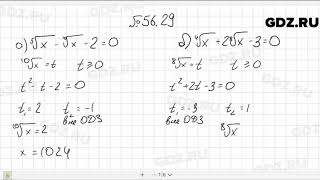 GDZ.RU
№56.29
а) ⁵√x - ¹⁰√x - 2 = 0
¹⁰√x = t t ≥ 0
t² - t - 2 = 0
t₁ = 2 t₂ = -1
вне ОДЗ
¹⁰√x = 2
x = 1024
б) ⁴√x + 2⁸√x - 3 = 0
⁸√x = t t ≥ 0
t² + 2t - 3 = 0
t₁ = -3 t₂ = 1
вне ОДЗ
⁸√x